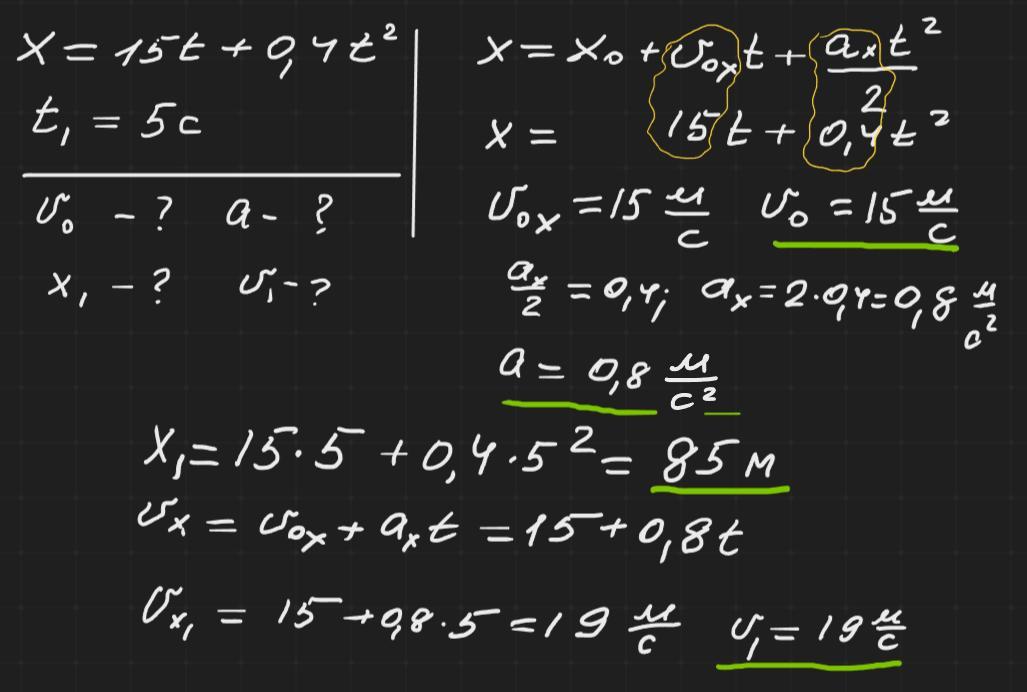 x = 15t + 0,4t²
t₁ = 5с
v₀ - ? a - ?
x₁ - ? v₁ - ?
x = x₀ + v₀ₓt + aₓt²/2
x = 15t + 0,4t²
v₀ₓ = 15 м/с v₀ = 15 м/с
aₓ/2 = 0,4; aₓ = 2·0,4 = 0,8 м/с²
a = 0,8 м/с²
x₁ = 15·5 + 0,4·5² = 85 м
vₓ = v₀ₓ + aₓt = 15 + 0,8t
vₓ₁ = 15 + 0,8·5 = 19 м/с v₁ = 19 м/с